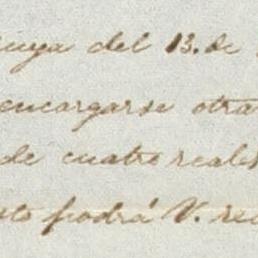 suya del 13. de
encargarse otra
de cuatro reales
podrá V.